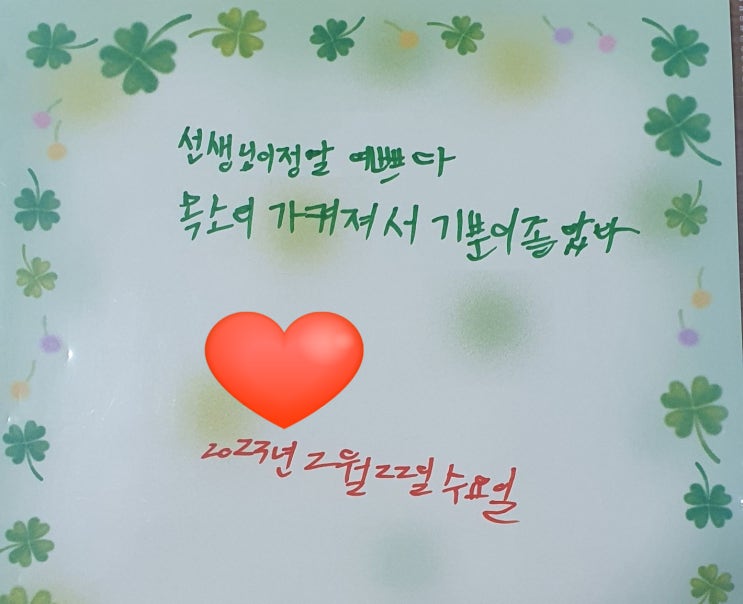 선생님이정말 예쁘다
목소리 가커져서 기분이좋았다
2023년 2월 22일 수요일